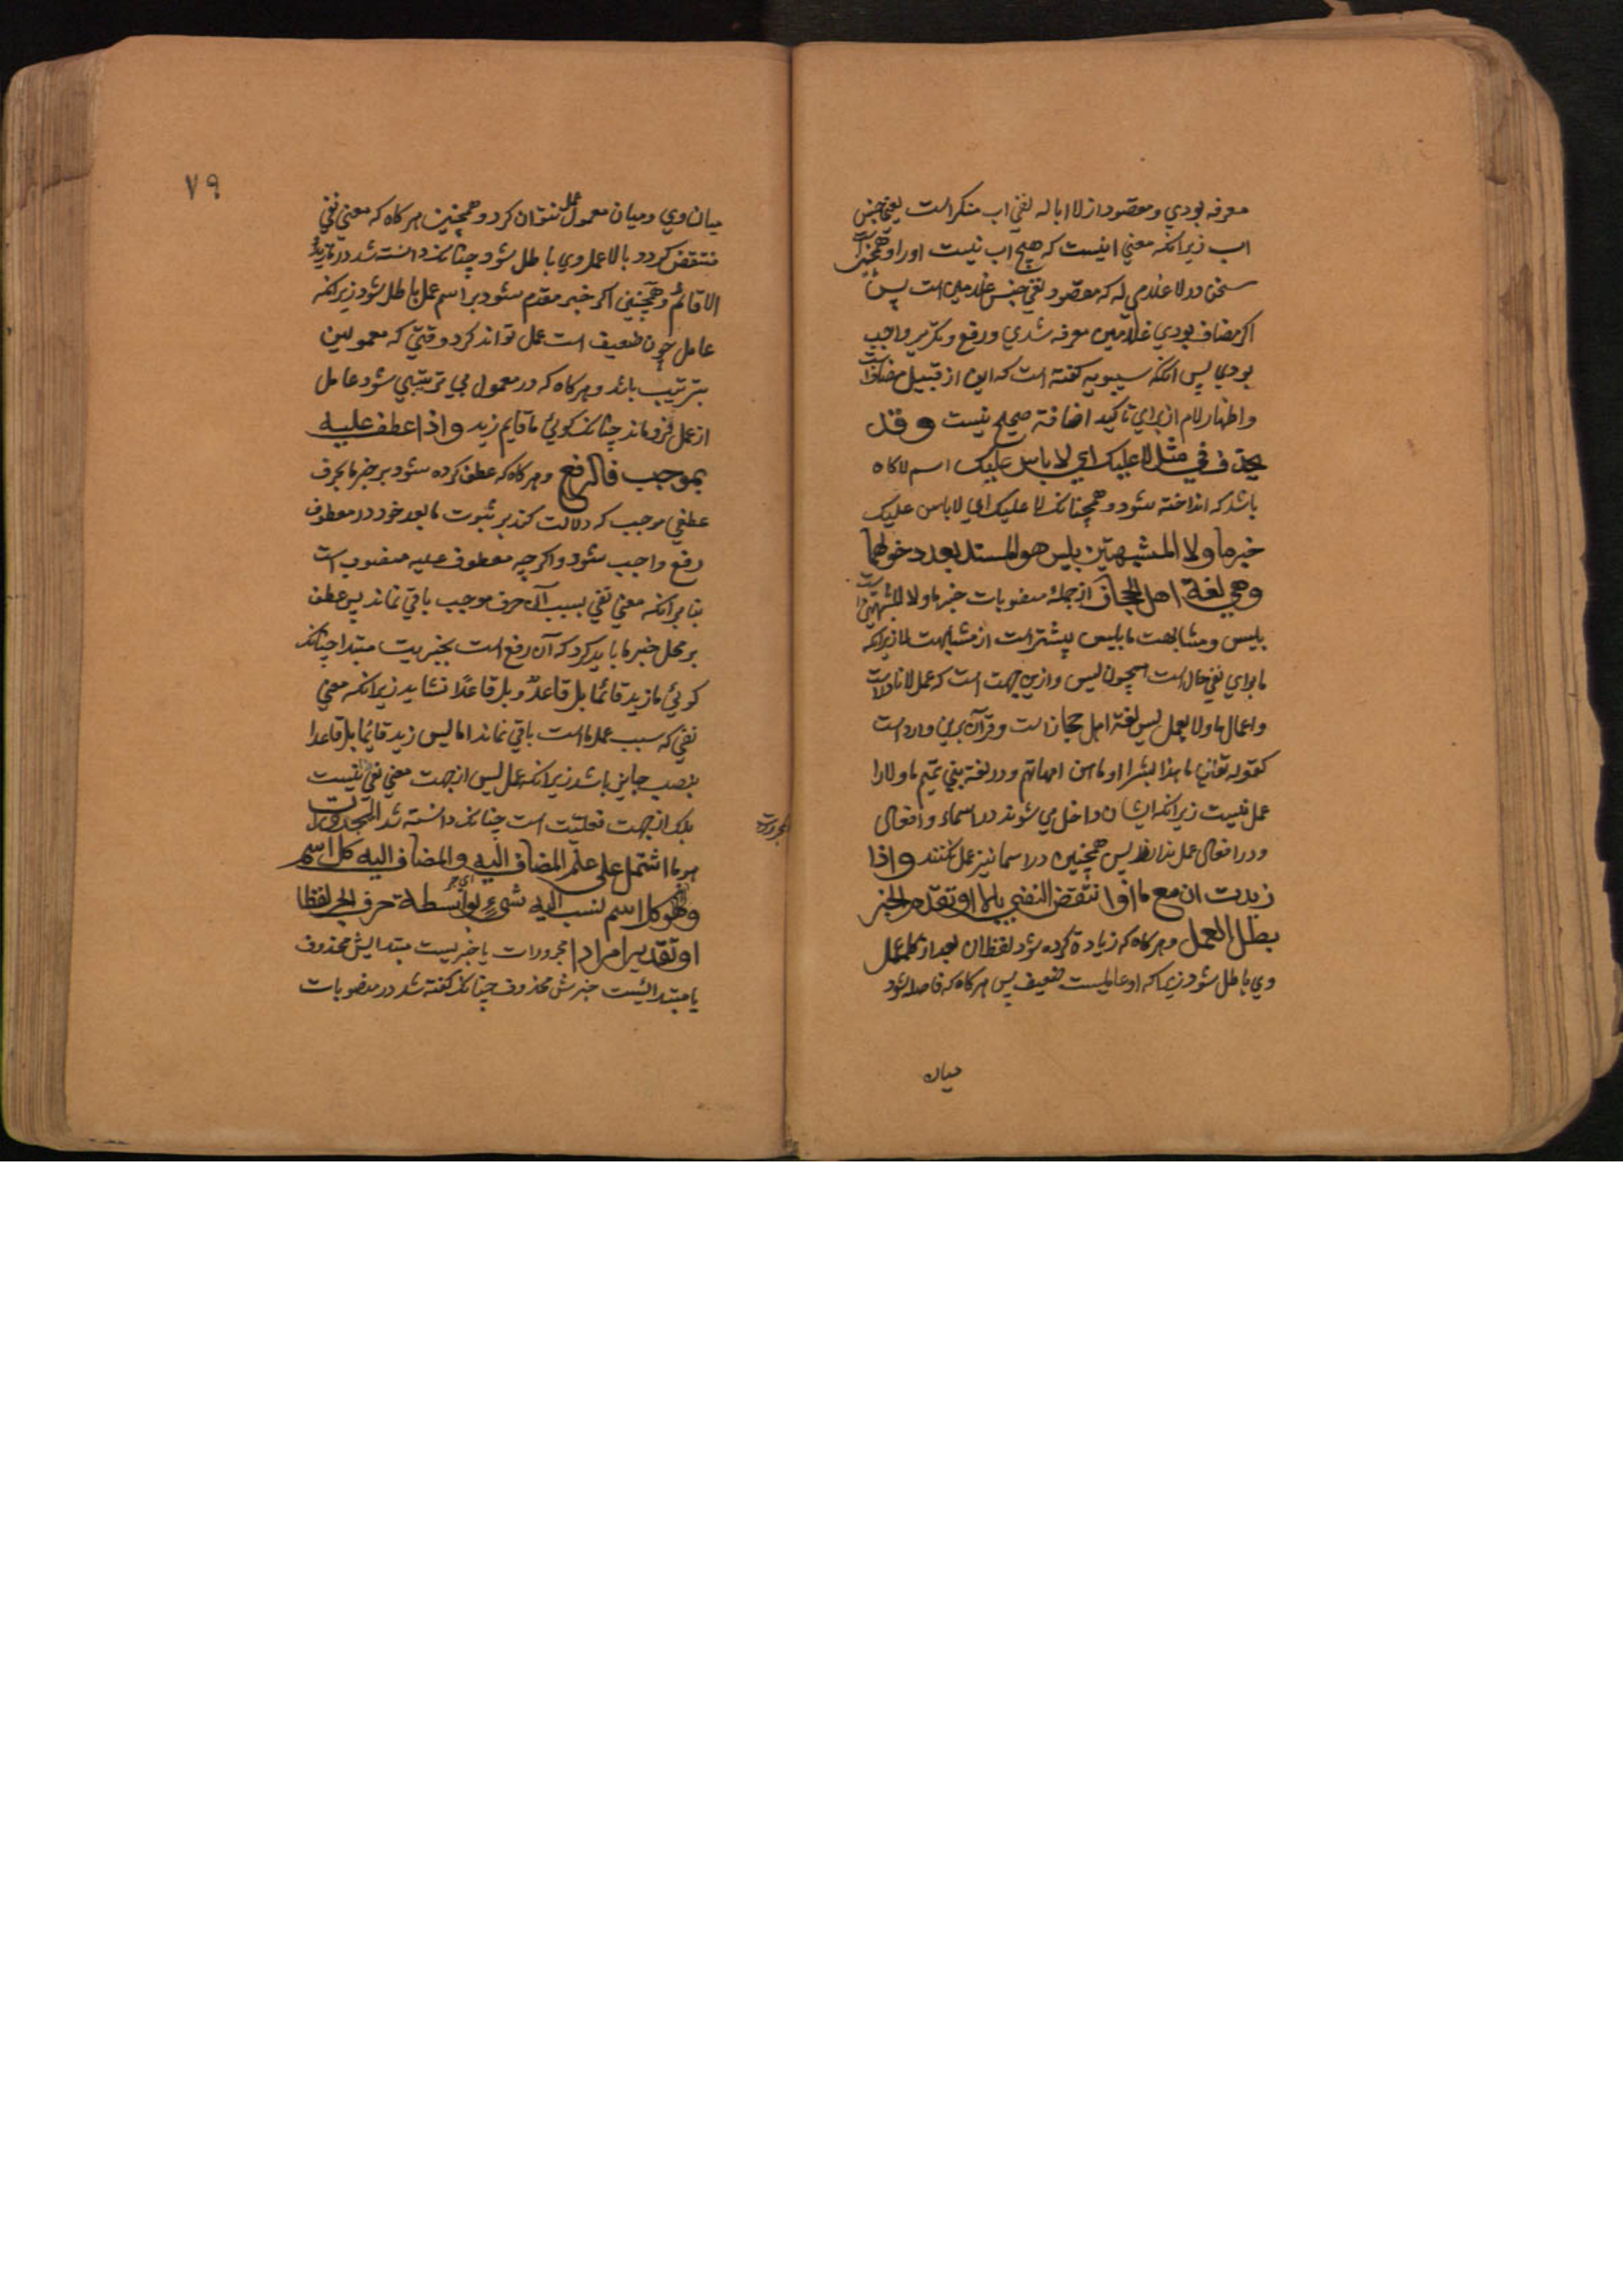 معرفه بودي ومقصود از لا ابا له نفي اب منكر است يعني جنس
اب زيرانكه معني اينست كه هيچ اب نيست او را وهمچنين است
سخن در لا غلامي له كه مقصود نفي جنس غلامين است پس
اكر مضاف بودي غلامين معرفه شدي ورفع وتكرير واجب
بودي پس انكه سيبويه كفته است كه اين از قبيل مضاف است
واظهار لام از براي تاكيد اضافة صحيح نيست وقد
يحذف في مثل لا عليك اي لا باس عليك اسم لا كاه
باشد كه انداخته شود وهمچنانكه لا عليك اي لا باس عليك
خبر ما ولا المشبهتين بليس هو المسند بعد دخولهما
وهي لغة اهل الحجاز از جملهٔ منصوبات خبر ما ولا المشبهتين است
بليس ومشابهت ما بليس بيشتر است از مشابهت لا زيرانكه
ما براي نفي حال است همچون ليس وازين جهت است كه عمل لا نادر است
واعمال ما ولا بعمل ليس لغة اهل حجاز است وقرآن برين وارد است
كقوله تعالي ما هذا بشرا او ما هن امهاتهم ودر لغة بني تميم ما ولا را
عمل نيست زيرانكه ايشان داخل مي شوند در اسماء وافعال
ودر افعال عمل ندارند پس همچنين در اسما نيز عمل نكنند واذا
زيدت ان مع ما او انتقض النفي بالا او تقدم الخبر
بطل العمل وهر كاه كه زيادة كرده شود لفظ ان بعد از ما عمل
وي باطل شود زيراكه او عامليست ضعيف پس هر كاه كه فاصله شود
ميان
٧٩
ميان وي وميان معمول عمل نتوان كرد وهمچنين هر كاه كه معني نفي
منتقض كردد بالا عمل وي باطل شود چنانكه دانسته شد در ما زيد
الا قائم وهمچنين اكر خبر مقدم شود بر اسم عمل باطل شود زيرانكه
عامل چون ضعيف است عمل تواند كرد وقتي كه معمولين
بترتيب باشد وهر كاه كه در معمول بي ترتيبي شود عامل
از عمل فرو ماند چنانكه كوئي ما قايم زيد واذا عطف عليه
بموجب فالرفع وهر كاه كه عطف كرده شود بر خبر ما بحرف
عطفي موجب كه دلالت كند بر ثبوت ما بعد خود در معطوف
رفع واجب شود واكرچه معطوف عليه منصوب است
بنا برانكه معني نفي بسبب آن حرف موجب باقي نماند پس عطف
بر محل خبر ما بايد كرد كه آن رفع است بخبريت مبتدا چنانكه
كوئي ما زيد قائما بل قاعدٌ وبل قاعدًا نشايد زيرانكه معني
نفي كه سبب عمل ما است باقي نماند اما ليس زيد قائما بل قاعدا
بنصب جايز باشد زيرانكه عمل ليس از جهت معني نفي نيست
بلك از جهت فعليت است چنانكه دانسته شد المجرورات
مجرورات
هو ما اشتمل علي علم المضاف اليه والمضاف اليه كل اسم
وهو كل اسم نسب اليه شيء بواسطة حرف الجر لفظا
او تقديرا مرادا مجرورات يا خبريست مبتدايش محذوف
يا مبتدائيست خبرش محذوف چنانكه كفته شد در منصوبات